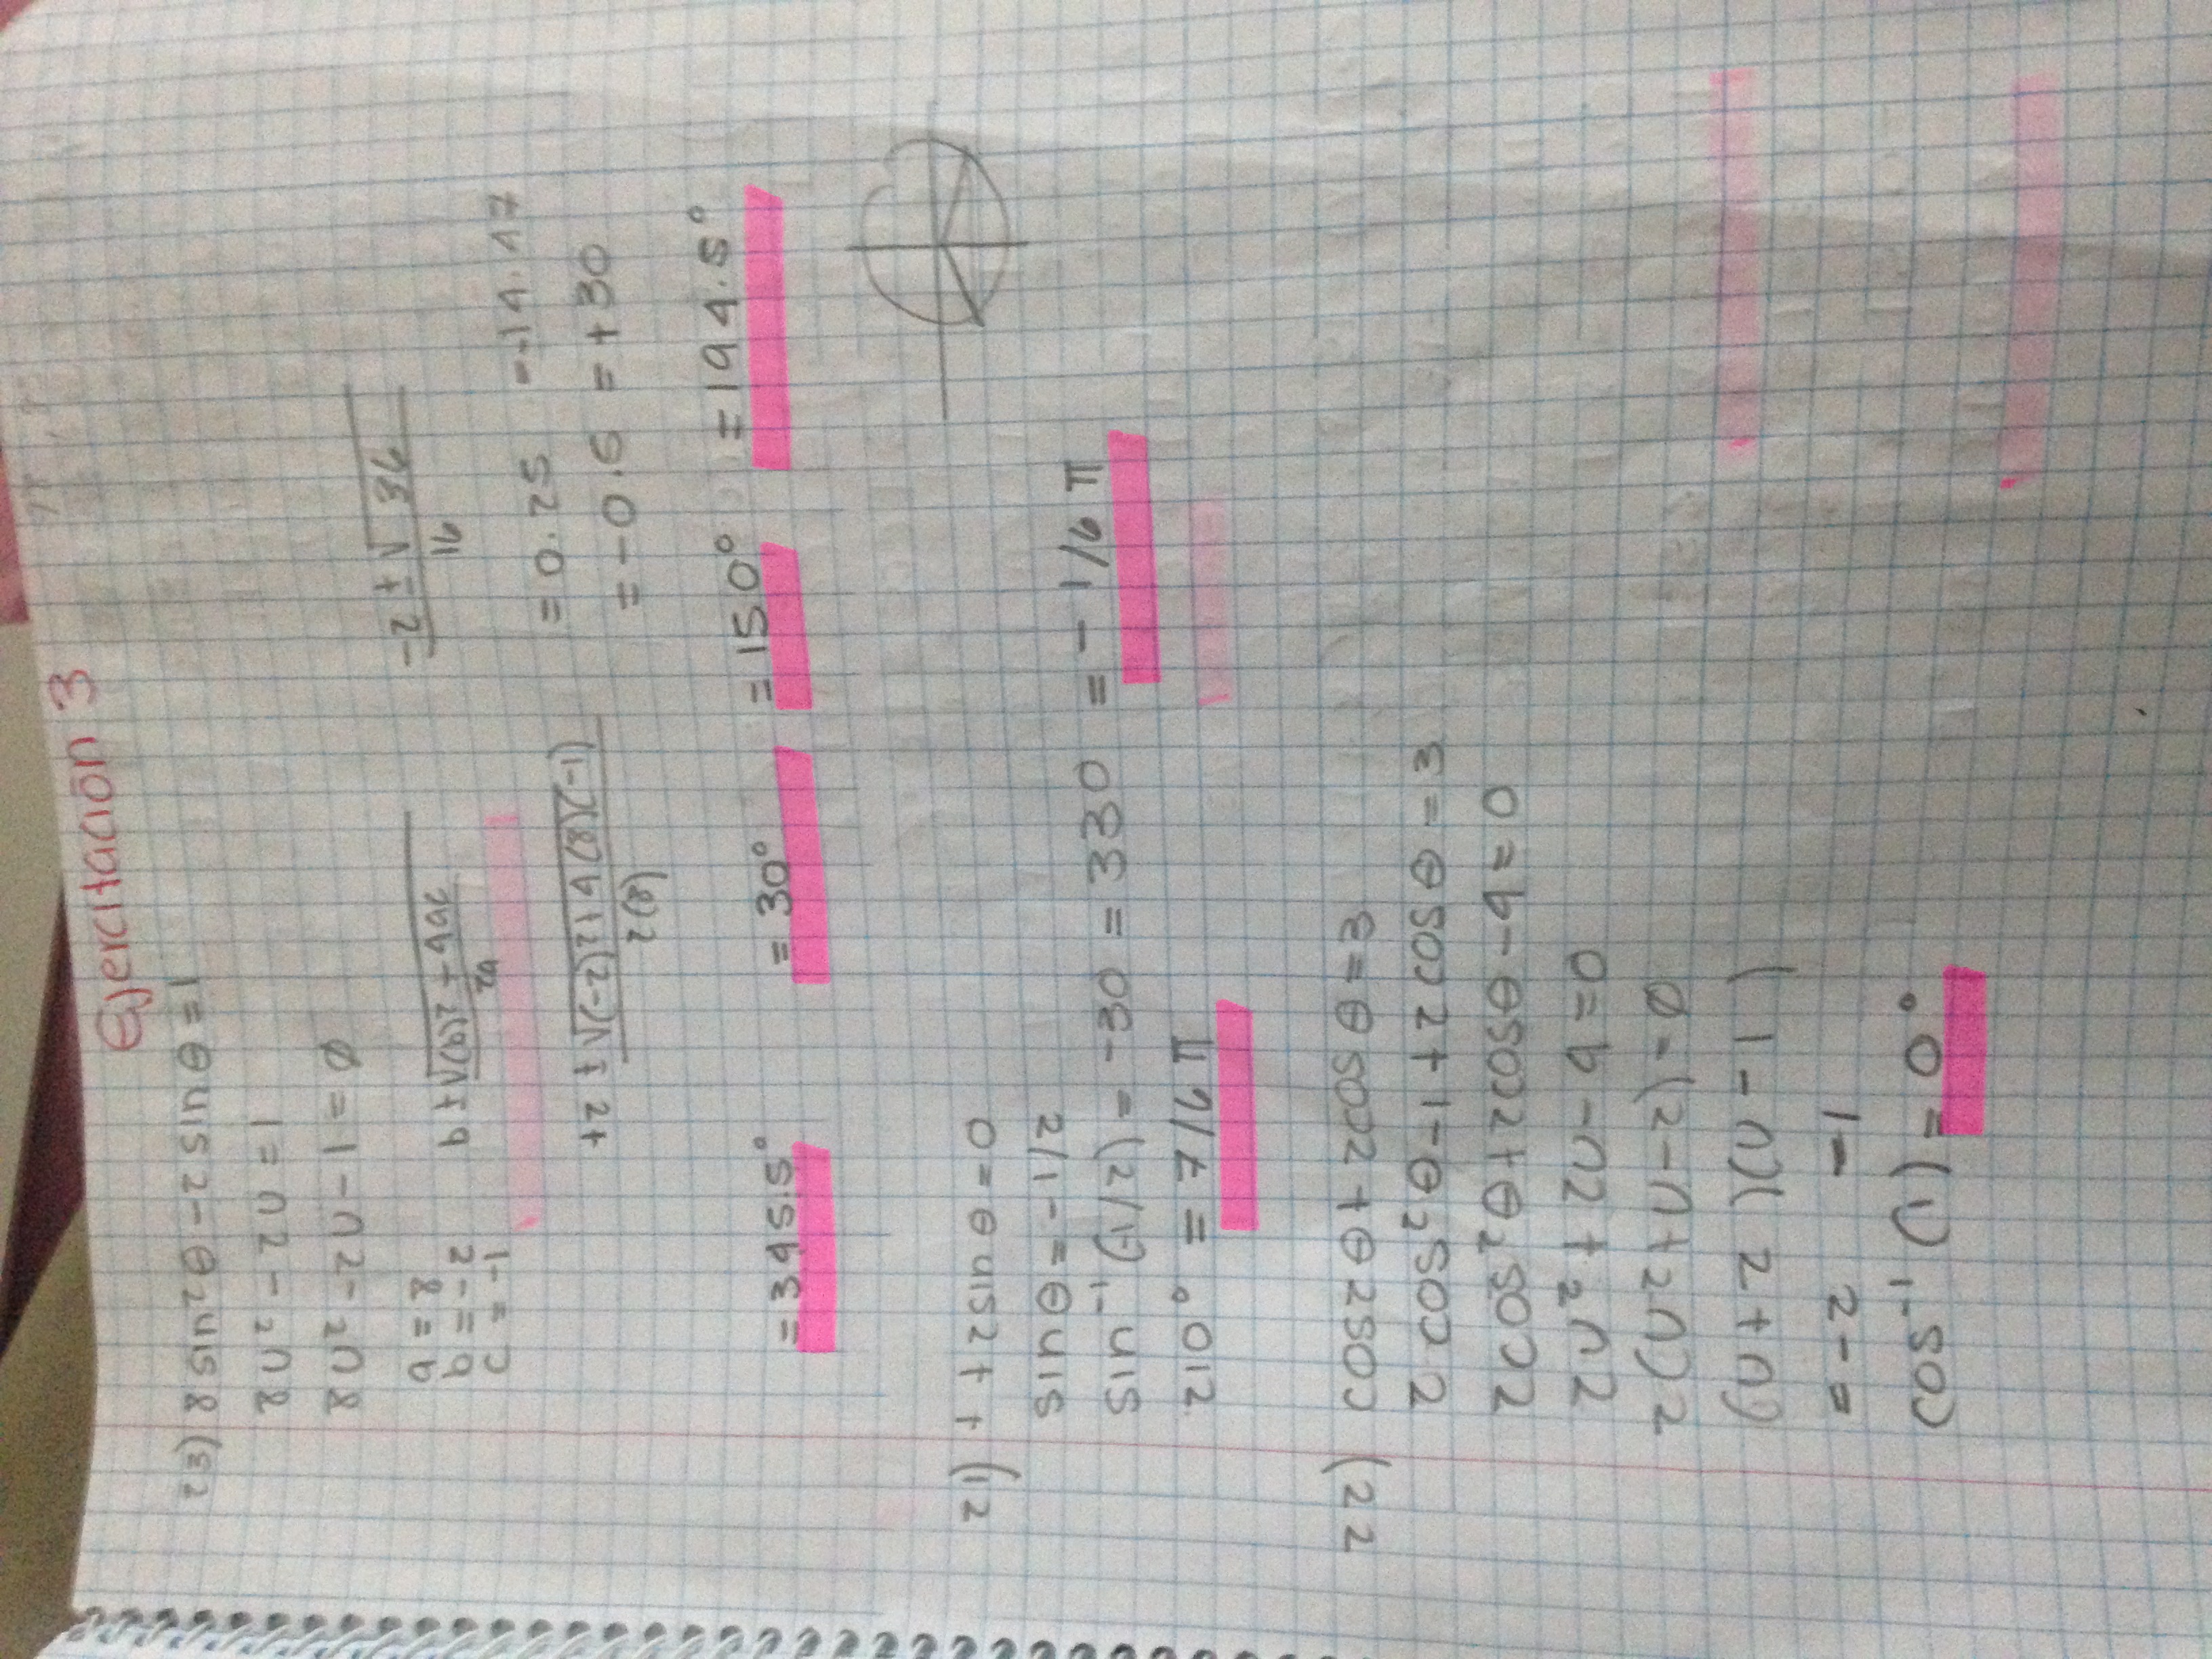 Ejercitación 3
23) 8 sin²θ - 2 sin θ = 1
8u² - 2u = 1
8u² - 2u - 1 = ∅
a = 8
b = -2
c = -1
b ± √(b)² - 4ac
2a
-2 ± √36
16
+2 ± √(-2)2+4(8)(-1)
2(8)
= 0.25 = -14.47
= -0.5 = +30
= 345.5° = 30° = 150° = 194.5°
21) 1 + 2 sin θ = 0
sin θ = -1/2
sin⁻¹ (1/2) = -30 = 330 = -1/6 π
210° = 7/6 π
22) cos 2θ + 2cos θ = 3
2 cos²θ - 1 + 2 cos θ = 3
2 cos²θ + 2cosθ - 4 = 0
2u² + 2u - 4 = 0
2 (u² + u - 2) = ∅
(u + 2)(u - 1)
= -2 -1
cos⁻¹ (1) = 0°